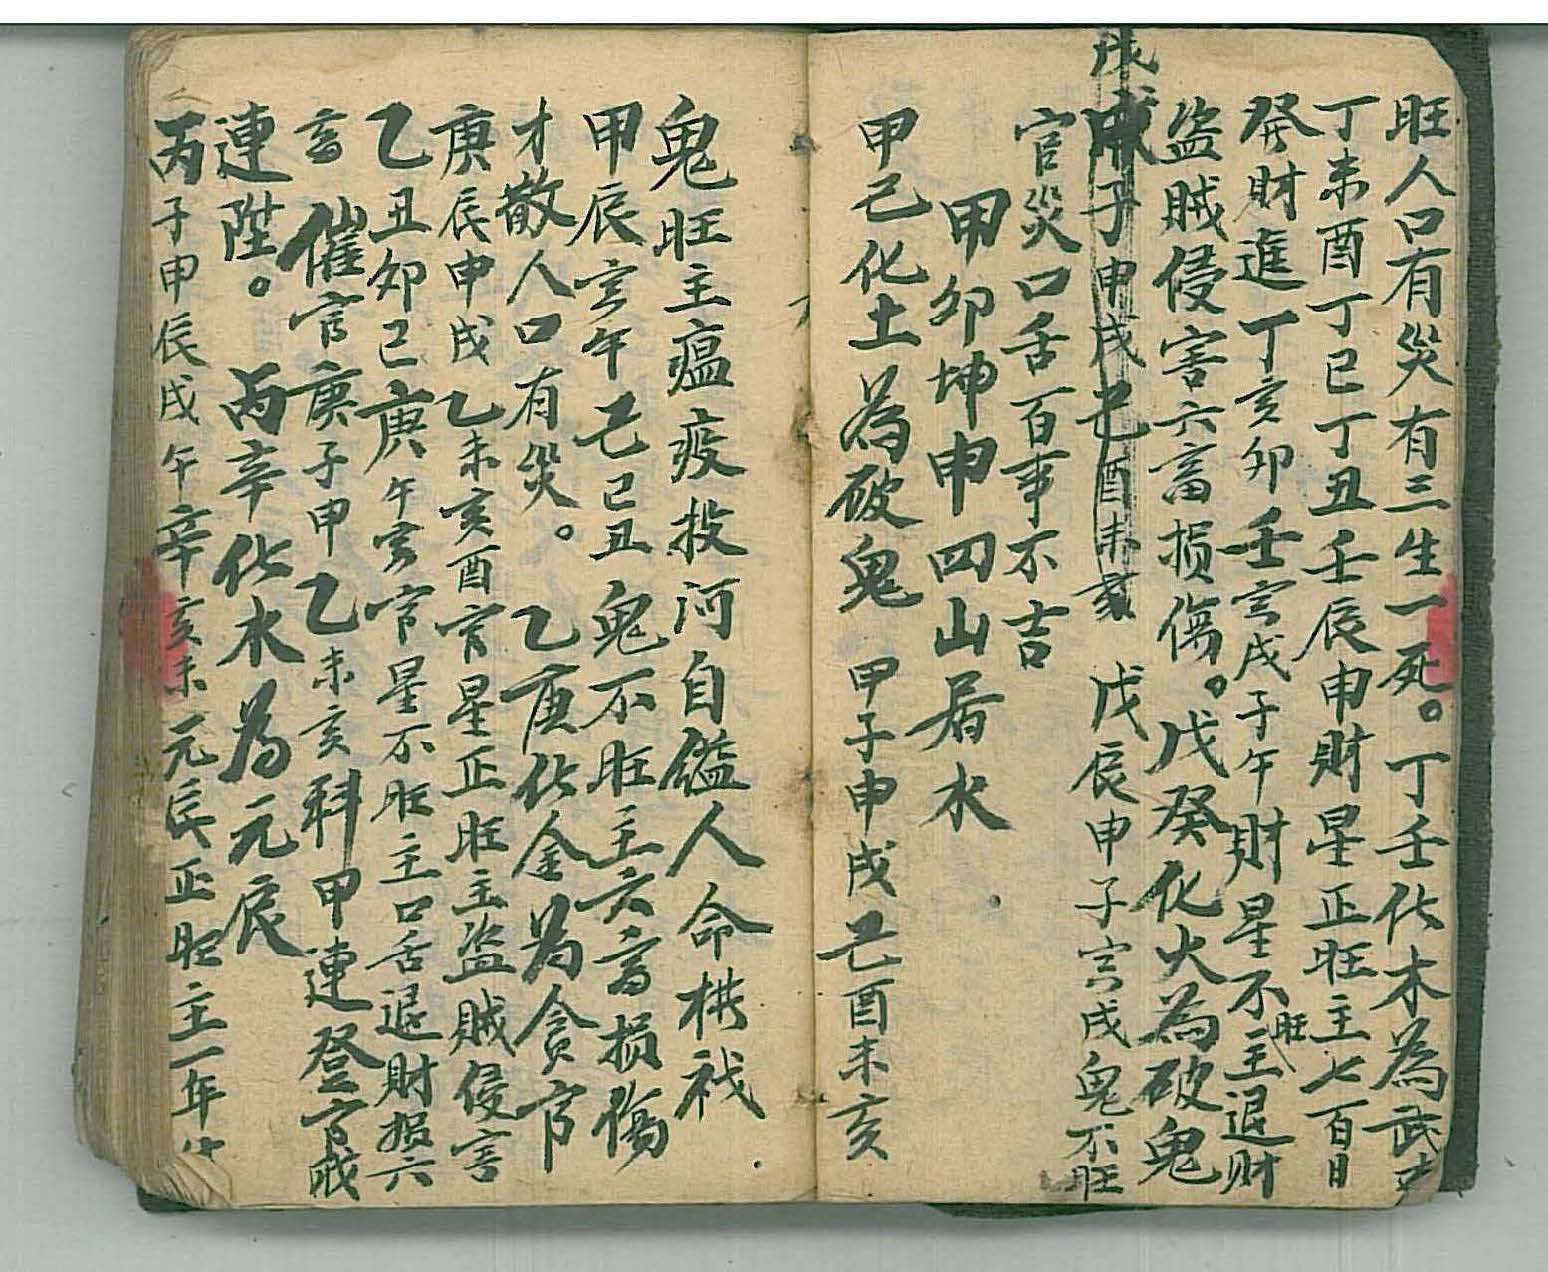 旺人口有災有三生一死。丁壬化木為武
丁未酉丁巳丁丑壬辰申財星正旺主七百日
發財進丁亥卯壬寅戌子午財星不旺主退財
盜賊侵害六畜損傷。戊癸化火為破鬼
戊子申戌己酉未亥 戊辰申子寅戌鬼不旺
官災口舌百事不吉
甲卯坤申四山居水
甲己化土為破鬼 甲子申戌己酉未亥
鬼旺主瘟疫投河自鎰人命栱杸
甲辰寅午己巳丑鬼不旺主六畜損傷
才散人口有災。 乙庚化金為貪官
庚辰申戌乙未亥酉官星正旺主盜賊侵害
乙丑卯己庚午寅官星不旺主口舌退財損六
畜 催官庚子甲乙未亥科甲連登官戒
連陞。 丙辛化水為元辰
丙子甲辰戌午辛亥未元辰正旺主一年